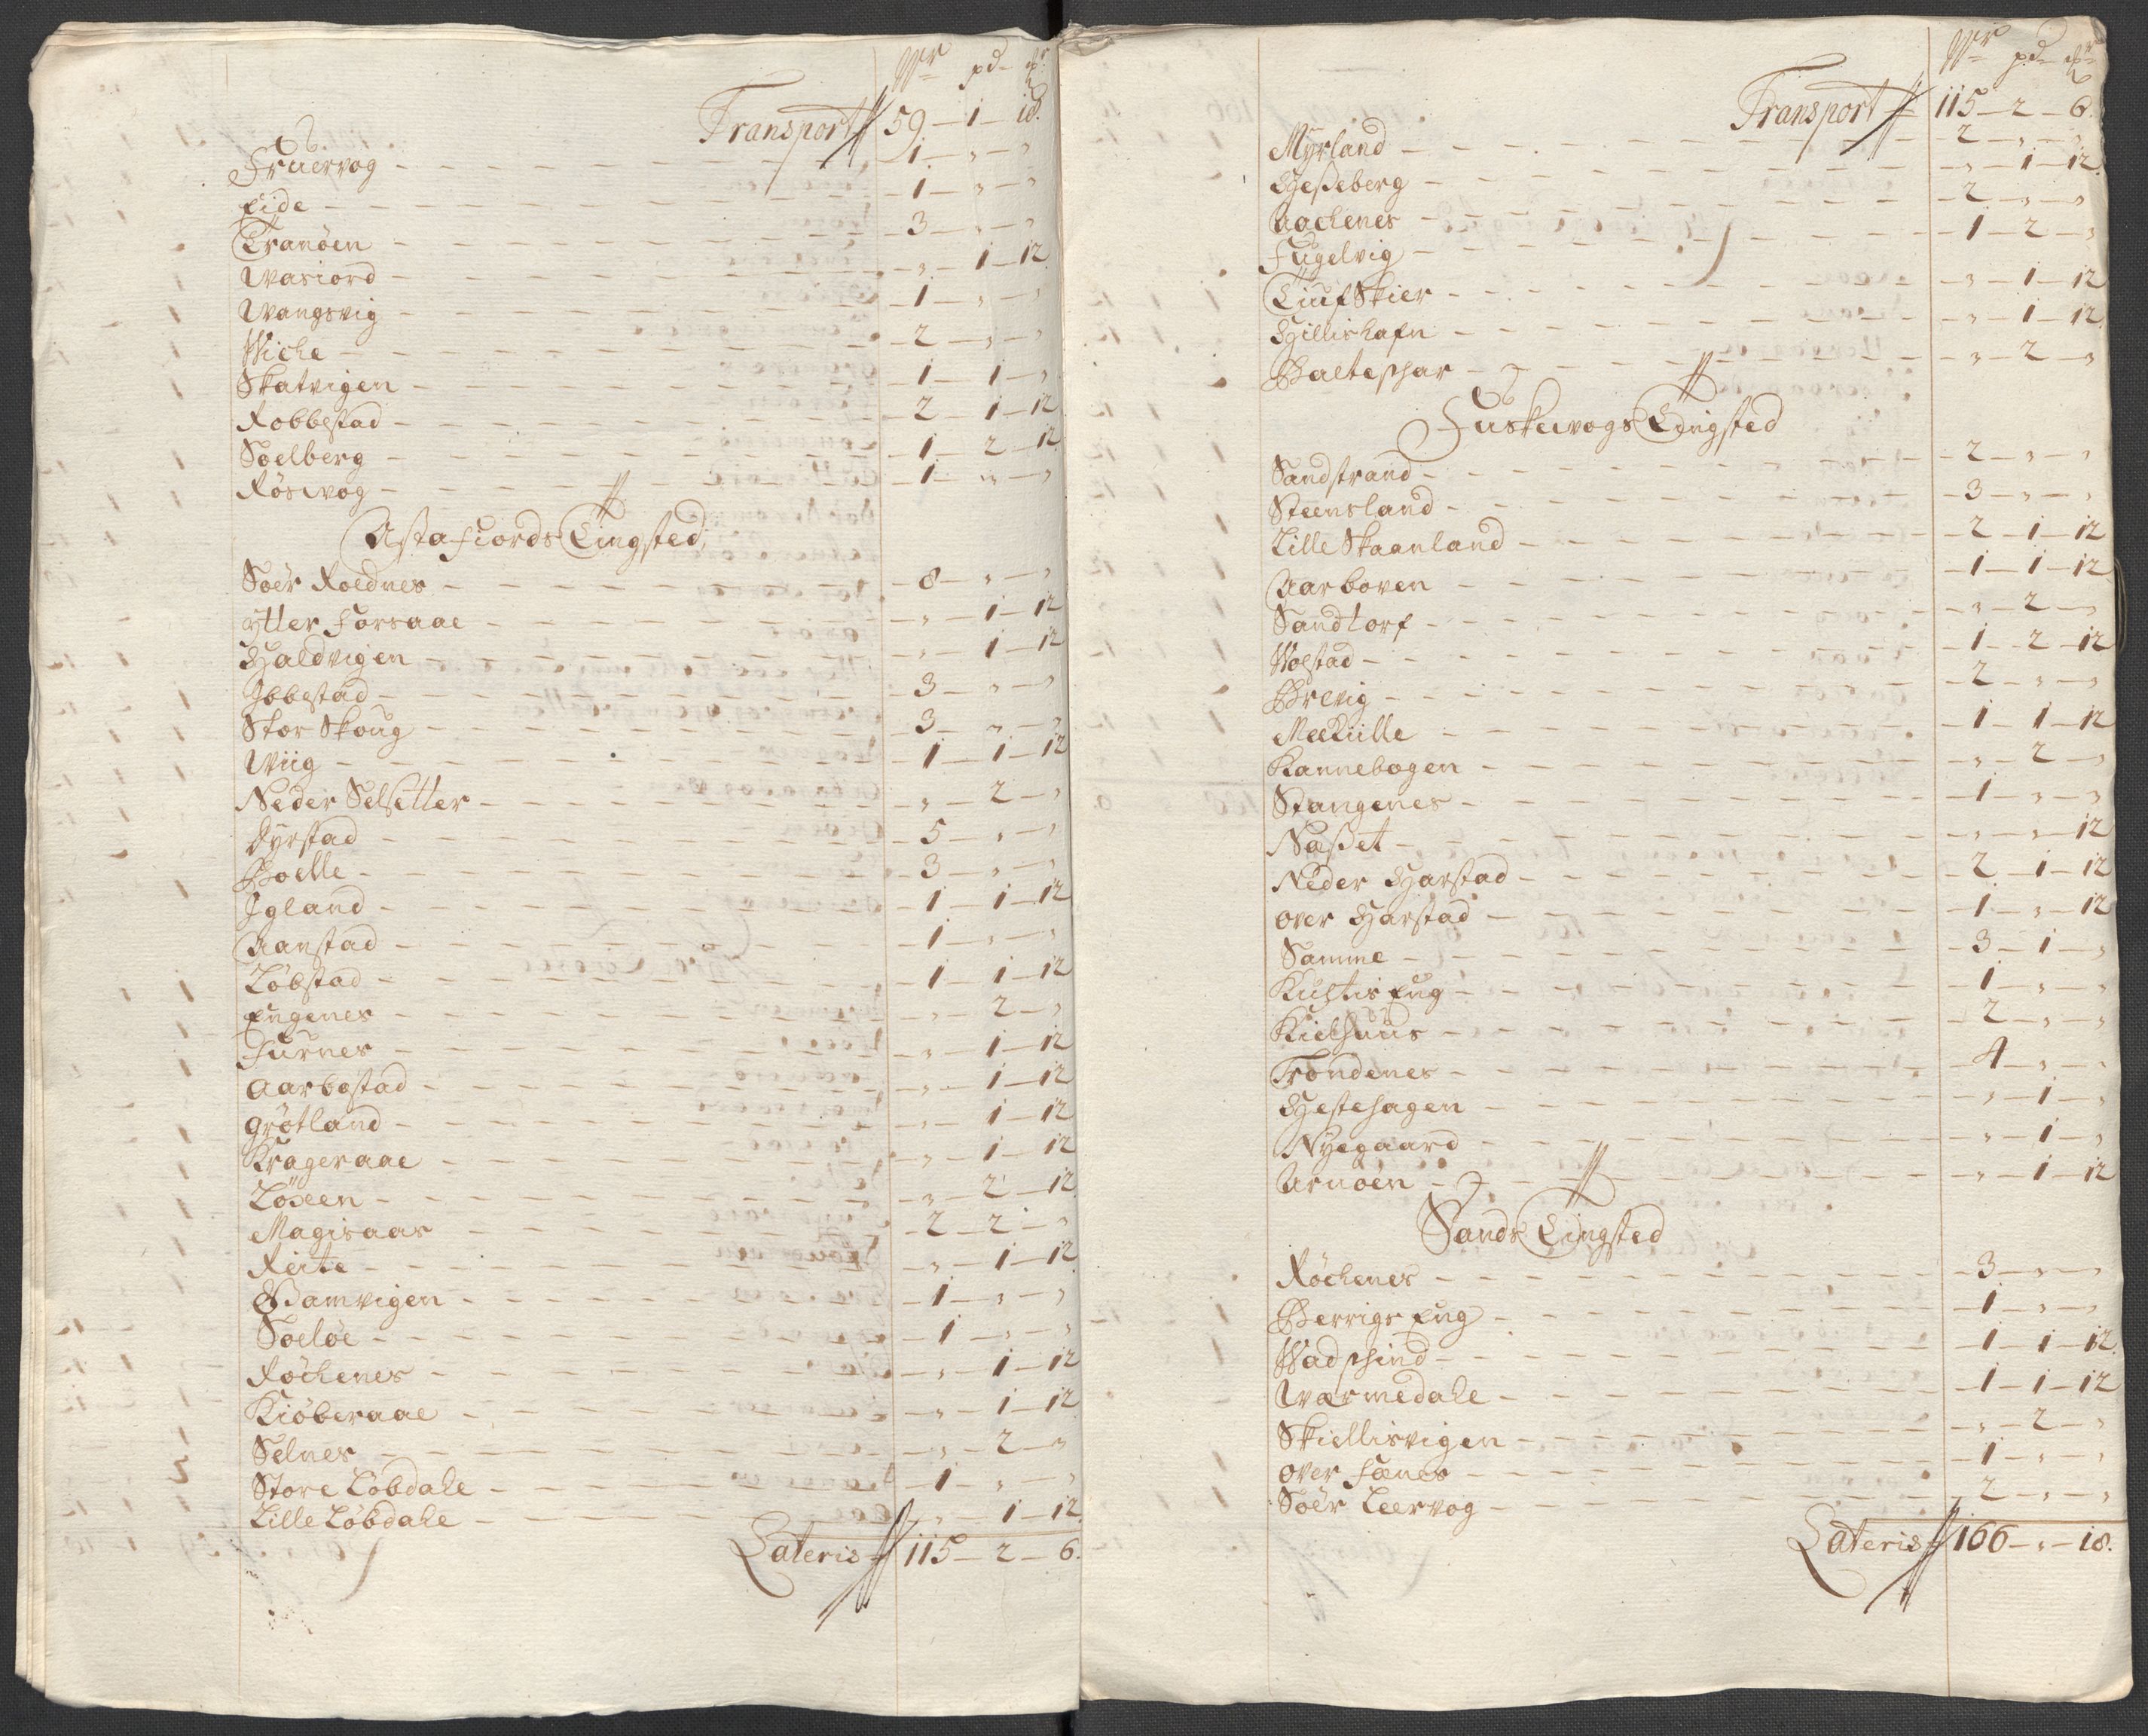 Wr pd mk
Transport 59 – 1 – 18.
Fruervog – 1 – „ – „
Eide – 1 – „ – „
Tranöen – 3 – „ – „
Wasiord – „ – 1 – 12
Wangsvig – 1 – „ – „
Wiche – 2 – „ – „
Skatvigen – 1 – 1 – „
Robbestad – 2 – 1 – 12
Söelberg – 1 – 2 – 12
Rösevog – 1 – „ – „
Astafiords Tingsted,
Soër Roldnes – 8 – „ – „
ytter Forsaae – „ – 1 – 12
Haldvigen – „ – 1 – 12
Ibbestad – 3 – „ – „
Stor Skoug – 3 – „ – „
Wiig – 1 – 1 – 12
Neder Selsetter – „ – 2 – „
Dyrstad – 5 – „ – „
Bolle – 3 – „ – „
Igland – 1 – 1 – 12
Aanstad – 1 – „ – „
Löbstad – 1 – 1 – 12
Engenes – „ – 2 – „
Furnes – „ – 1 – 12
Aarbostad – „ – 1 – 12
Grötland – „ – 1 – 12
Krageraae – „ – 1 – 12
Löseen – „ – 2 – 12
Magisaas – 2 – 2 – „
Reite – „ – 1 – 12
Gamvigen – 1 – „ – „
Soelöe – 1 – „ – „
Röchenes – „ – 1 – 12
Kiöberaae – „ – 1 – 12
Selnes – „ – 2 – „
Store Löbdale – 1 – „ – „
Lille Löbdale – „ – 1 – 12.
Lateris 115 – 2 – 6.
Wr pd mk
Transport 115 – 2 – 6.
Myrland – 2 – „ – „
Heßeberg – „ – 1 – 12.
Aachenes – 2 – „ – „
Fugelvig – 1 – 2 – „
Tiufskier – „ – 1 – 12
Hillishafn – „ – 1 – 12.
Balteskar – „ – 2 – „
Fuskewogs Tingsted
Sandstrand – 2 – „ – „
Steensland – 3 – „ – „
Lille Skaanland – 2 – 1 – 12
Aarboven – 1 – 1 – 12
Sandtorf – „ – 2 – „
Wolstad – 1 – 2 – 12
Brevig – 2 – „ – „
Melkiille – 1 – 1 – 12
Kannebogen – „ – 2 – „
Stangenes – 1 – „ – „
Næßet – „ – „ – 12
Neder Harstad – 2 – 1 – 12
over Harstad – 1 – „ – 12
Samme – 3 – 1 – „
Kiistis Eng – 1 – „ – „
Kielhuus – 2 – „ – „
Trondenes – 4 – „ – „
Hestehagen – „ – 1 – „
Nyegaard – „ – 1 – „
Arnöen – „ – 1 – 12
Sands Tingsted
Röchenes – 3 – „ – „
Berrigs Eng – 1 – „ – „
Wadskind – 1 – 1 – 12.
Wærmedale – 1 – 1 – 12
Skiellisvigen – „ – 2 – „
over Fænes – 1 – „ – „
Soër Leervog – 2 – „ – „
Lateris 166 – „ – 18.